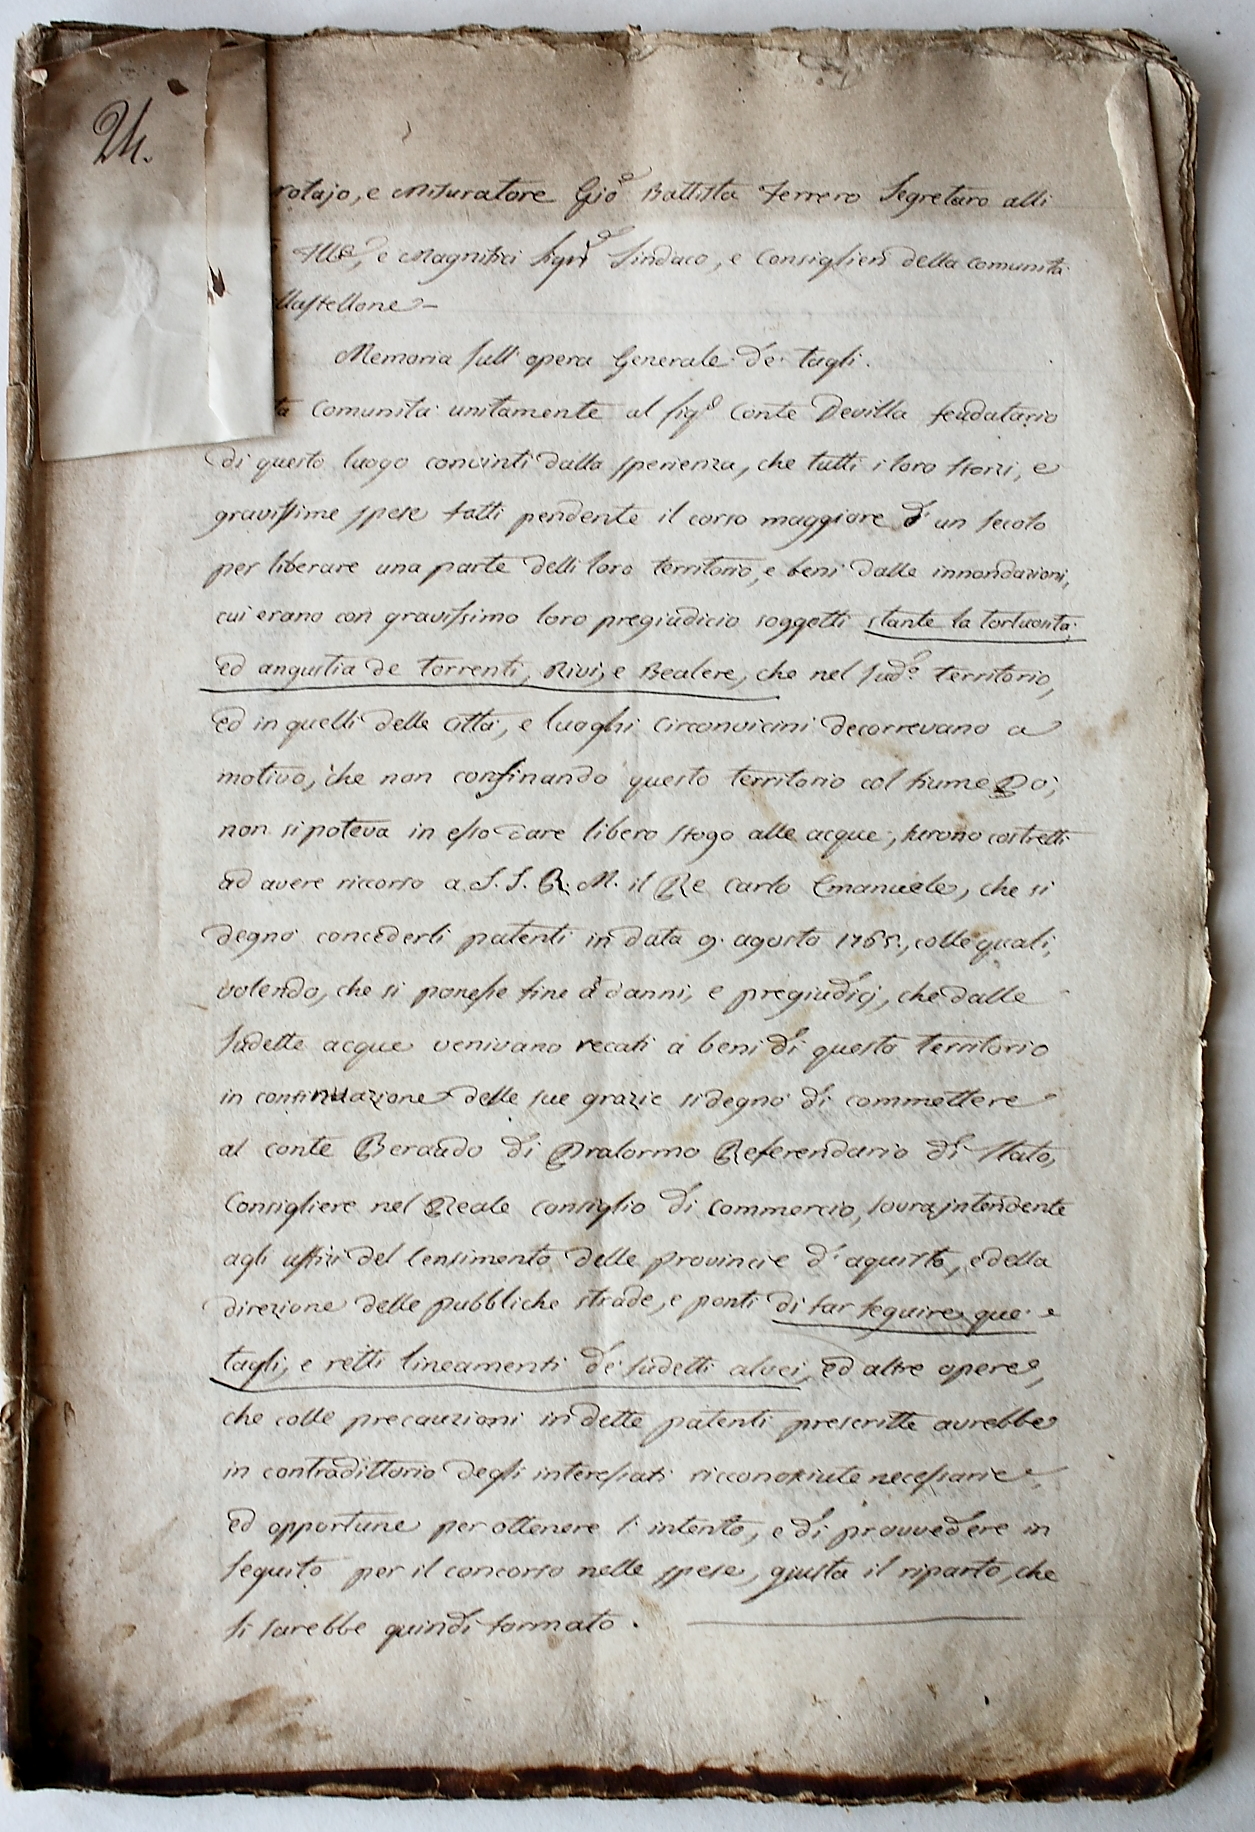 24.
rotajo, e Misuratore Gio Battista Ferrero Segretaro alli
Ill, e Magnifici Sig.ri Sindaco, e Consiglieri della Comunità
llastellone -
Memoria sull' opera Generale de' tagli.
ta Comunità unitamente al Sig.r Conte Devilla feudatario
di questo luogo convinti dalla sperienza, che tutti i loro sforzi, e
gravissime spese fatti pendente il corso maggiore d' un secolo
per liberare una parte delli loro territorio, e beni dalle innondazioni,
cui erano con gravissimo loro pregiudicio soggetti stante la tortuosità,
ed angustia de torrenti, Rivi, e Bealere, che nel sud.o territorio,
ed in quelli delle Città, e luoghi circonvicini decorrevano a
motivo, che non confinando questo territorio col fiume Pò;
non si poteva in esso dare libero sfogo alle acque, furono costretti
ad avere ricorso a S. S. R. M. il Re Carlo Emanuele, che si
degnò concederli patenti in data 9. agosto 1765., colle quali,
volendo, che si ponesse fine a' danni, e pregiudicj, che dalle
sudette acque venivano recati a beni di questo territorio
in continuazione delle sue grazie si degnò di commettere
al Conte Beraudo di Pralormo Referendario di Stato,
Consigliere nel Reale Consiglio di Commercio, sovrajntendente
agli uffizi del Censimento delle provincie d' aquisto, e della
direzione delle pubbliche strade, e ponti di far seguire que'
tagli, e retti lineamenti de' sudetti alvei, ed altre opere,
che colle precauzioni in dette patenti prescritte avrebbe
in contradittorio degli interessati ricconosciute necessarie,
ed opportune per ottenere l' intento, e di provvedere in
seguito per il concorso nelle spese, giusta il riparto, che
si sarebbe quindi formato.